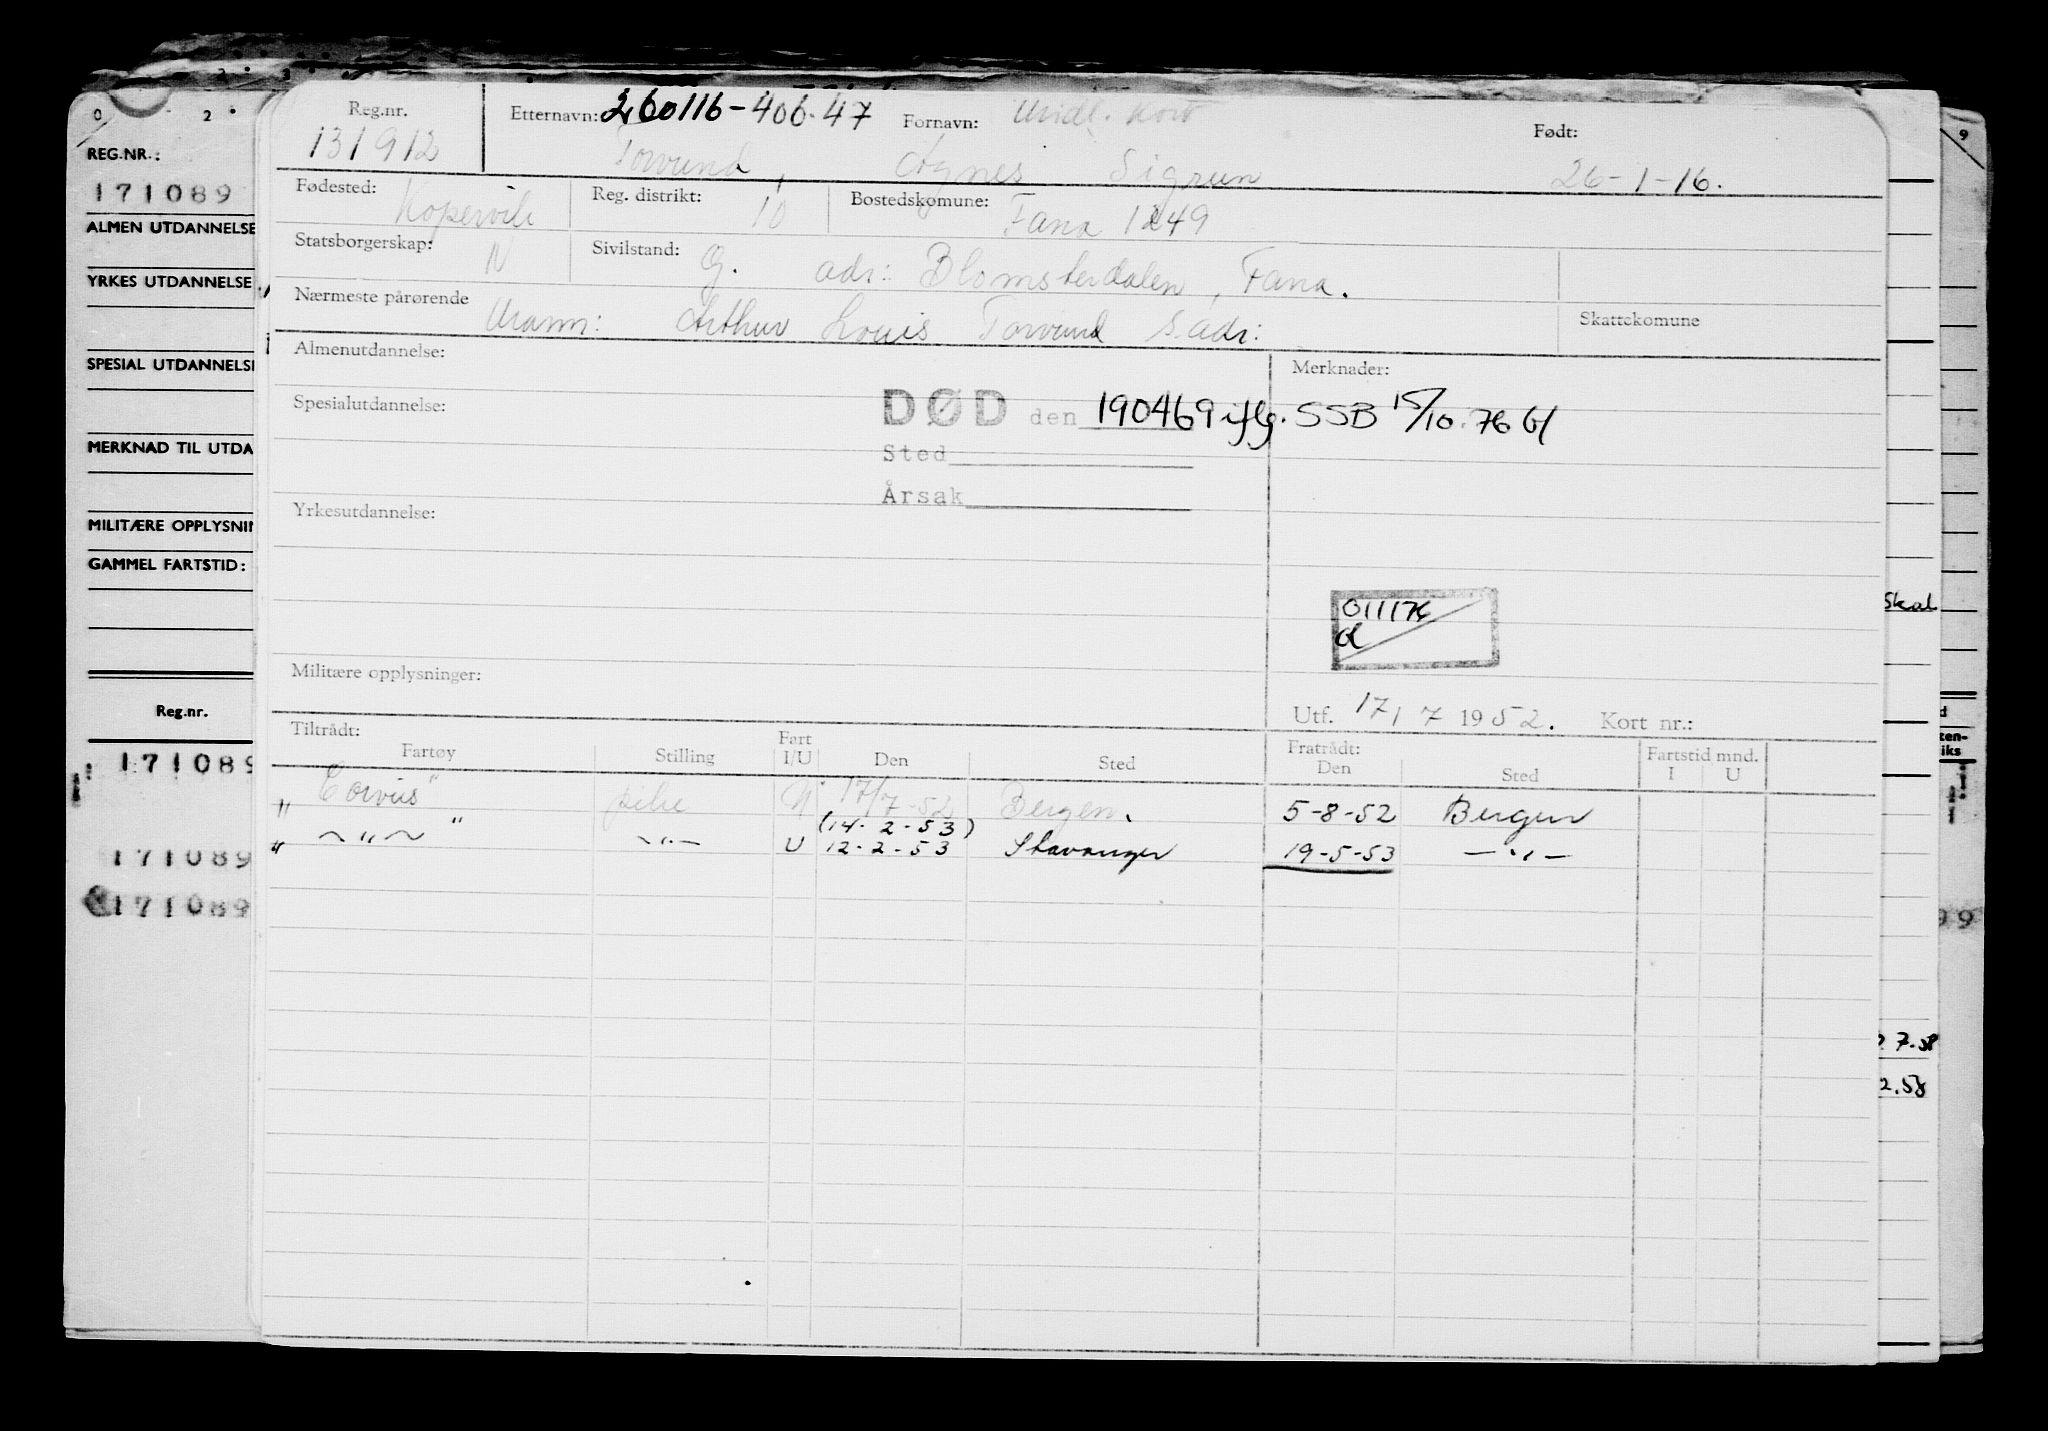 0 2 9
REG.NR.:
171089
ALMEN UTDANNELSE
YRKES UTDANNELSE
SPESIAL UTDANNELS
MERKNAD TIL UTDA
MILITÆRE OPPLYSNI
GAMMEL FARTSTID:
Reg.nr.
171089
171089
171089
Reg.nr. 131912
Etternavn: 260116-406.47 Fornavn: Midl. kort Født:
Torvund, Agnes Sigrun 26-1-16.
Fødested: Kopervik Reg. distrikt: 10 Bostedskomune: Fana 1249
Statsborgerskap: N Sivilstand: G. adr: Blomsterdalen, Fana.
Nærmeste pårørende Mann: Arthur Louis Torvund s.adr: Skattekomune
Almenutdannelse: Merknader:
Spesialutdannelse: DØD den 190469 iflg. SSB 15/10.76
Sted
Årsak
Yrkesutdannelse:
011176
Militære opplysninger:
Utf. 17/7 1952. Kort nr.:
Tiltrådt: Fratrådt:
Fartøy Stilling Fart I/U Den Sted Den Sted Fartstid mnd. I U
" Corvus" pike 17/7-52 Bergen. 5-8-52 Bergen
(14-2-53)
" ~ " ~ " - " - U 12-2-53 Stavanger 19-5-53 - " -
Skal
7.58
2.58
d
ten-
iks
99